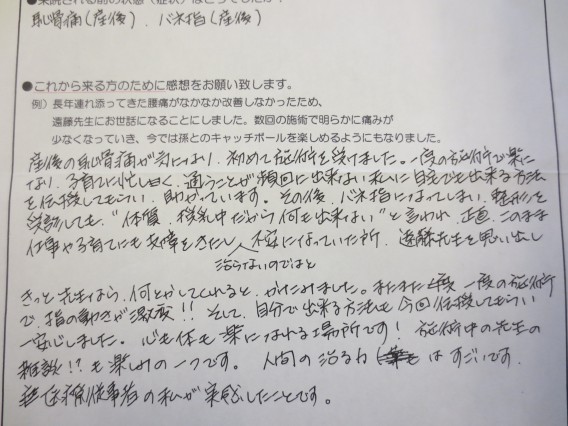 ●来院される前の状態（症状）はどうでしたか？
恥骨痛（産後）、バネ指（産後）
●これから来る方のために感想をお願い致します。
例）長年連れ添ってきた腰痛がなかなか改善しなかったため、
遠藤先生にお世話になることにしました。数回の施術で明らかに痛みが
少なくなっていき、今では孫とのキャッチボールを楽しめるようにもなりました。
産後の恥骨痛が気になり、初めて施術を受けました。一度の施術で楽に
なり、子育てに忙しく、通うことが頻回に出来ない私に自宅でも出来る方法
を伝授してもらい、助かっています。その後、バネ指になってしまい、整形を
受診しても、"体質、授乳中だから何も出来ない"と言われ、正直、このまま
仕事や子育てにも支障をきたし、不安になっていた所、遠藤先生を思い出し
治らないのではと
きっと先生なら、何とかしてくれると、かけこみました。またまた 一度の施術
で、指の動きが激変!! そして、自分で出来る方法も今回伝授してもらい
一安心しました。心も体も楽になれる場所です! 施術中の先生の
雑談!?も楽しみの一つです。人間の治る力 はすごいです。
医療従事者の私が実感したことです。